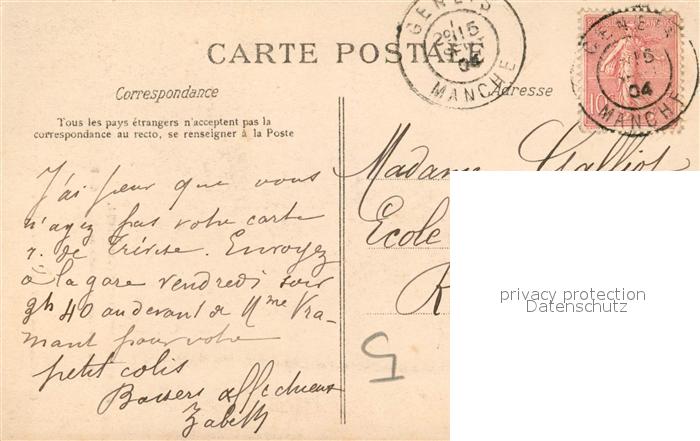 CARTE POSTALE
GENETS
15
04
MANCHE
GENETS
15
04
MANCHE
10
Correspondance
Adresse
Tous les pays étrangers n'acceptent pas la
correspondance au recto, se renseigner à la Poste
J'ai peur que vous
n'ayez pas votre carte
r. de Trévise. Envoyez
à la gare vendredi soir
9h 40 au devant de Mme Vra-
mant pour votre
petit colis
Baisers affectueux
Zabeth
Madame Galliot
École
R
5
privacy protection
Datenschutz